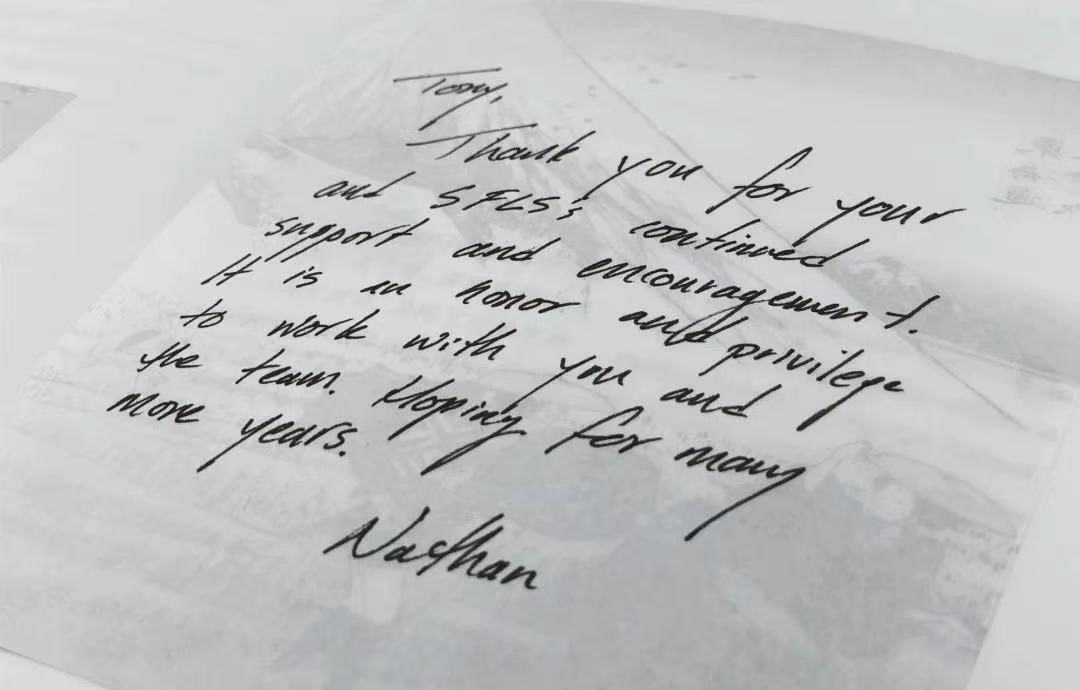 Tony,
Thank you for your
and SFLS's continued
support and encouragement.
It is an honor and privilege
to work with you and
the team. Hoping for many
more years.
Nathan